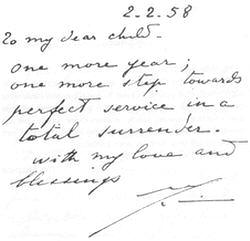 2.2.58
To my dear child.
one more year;
one more step towards
perfect service in a
total surrender.
with my love and
blessings